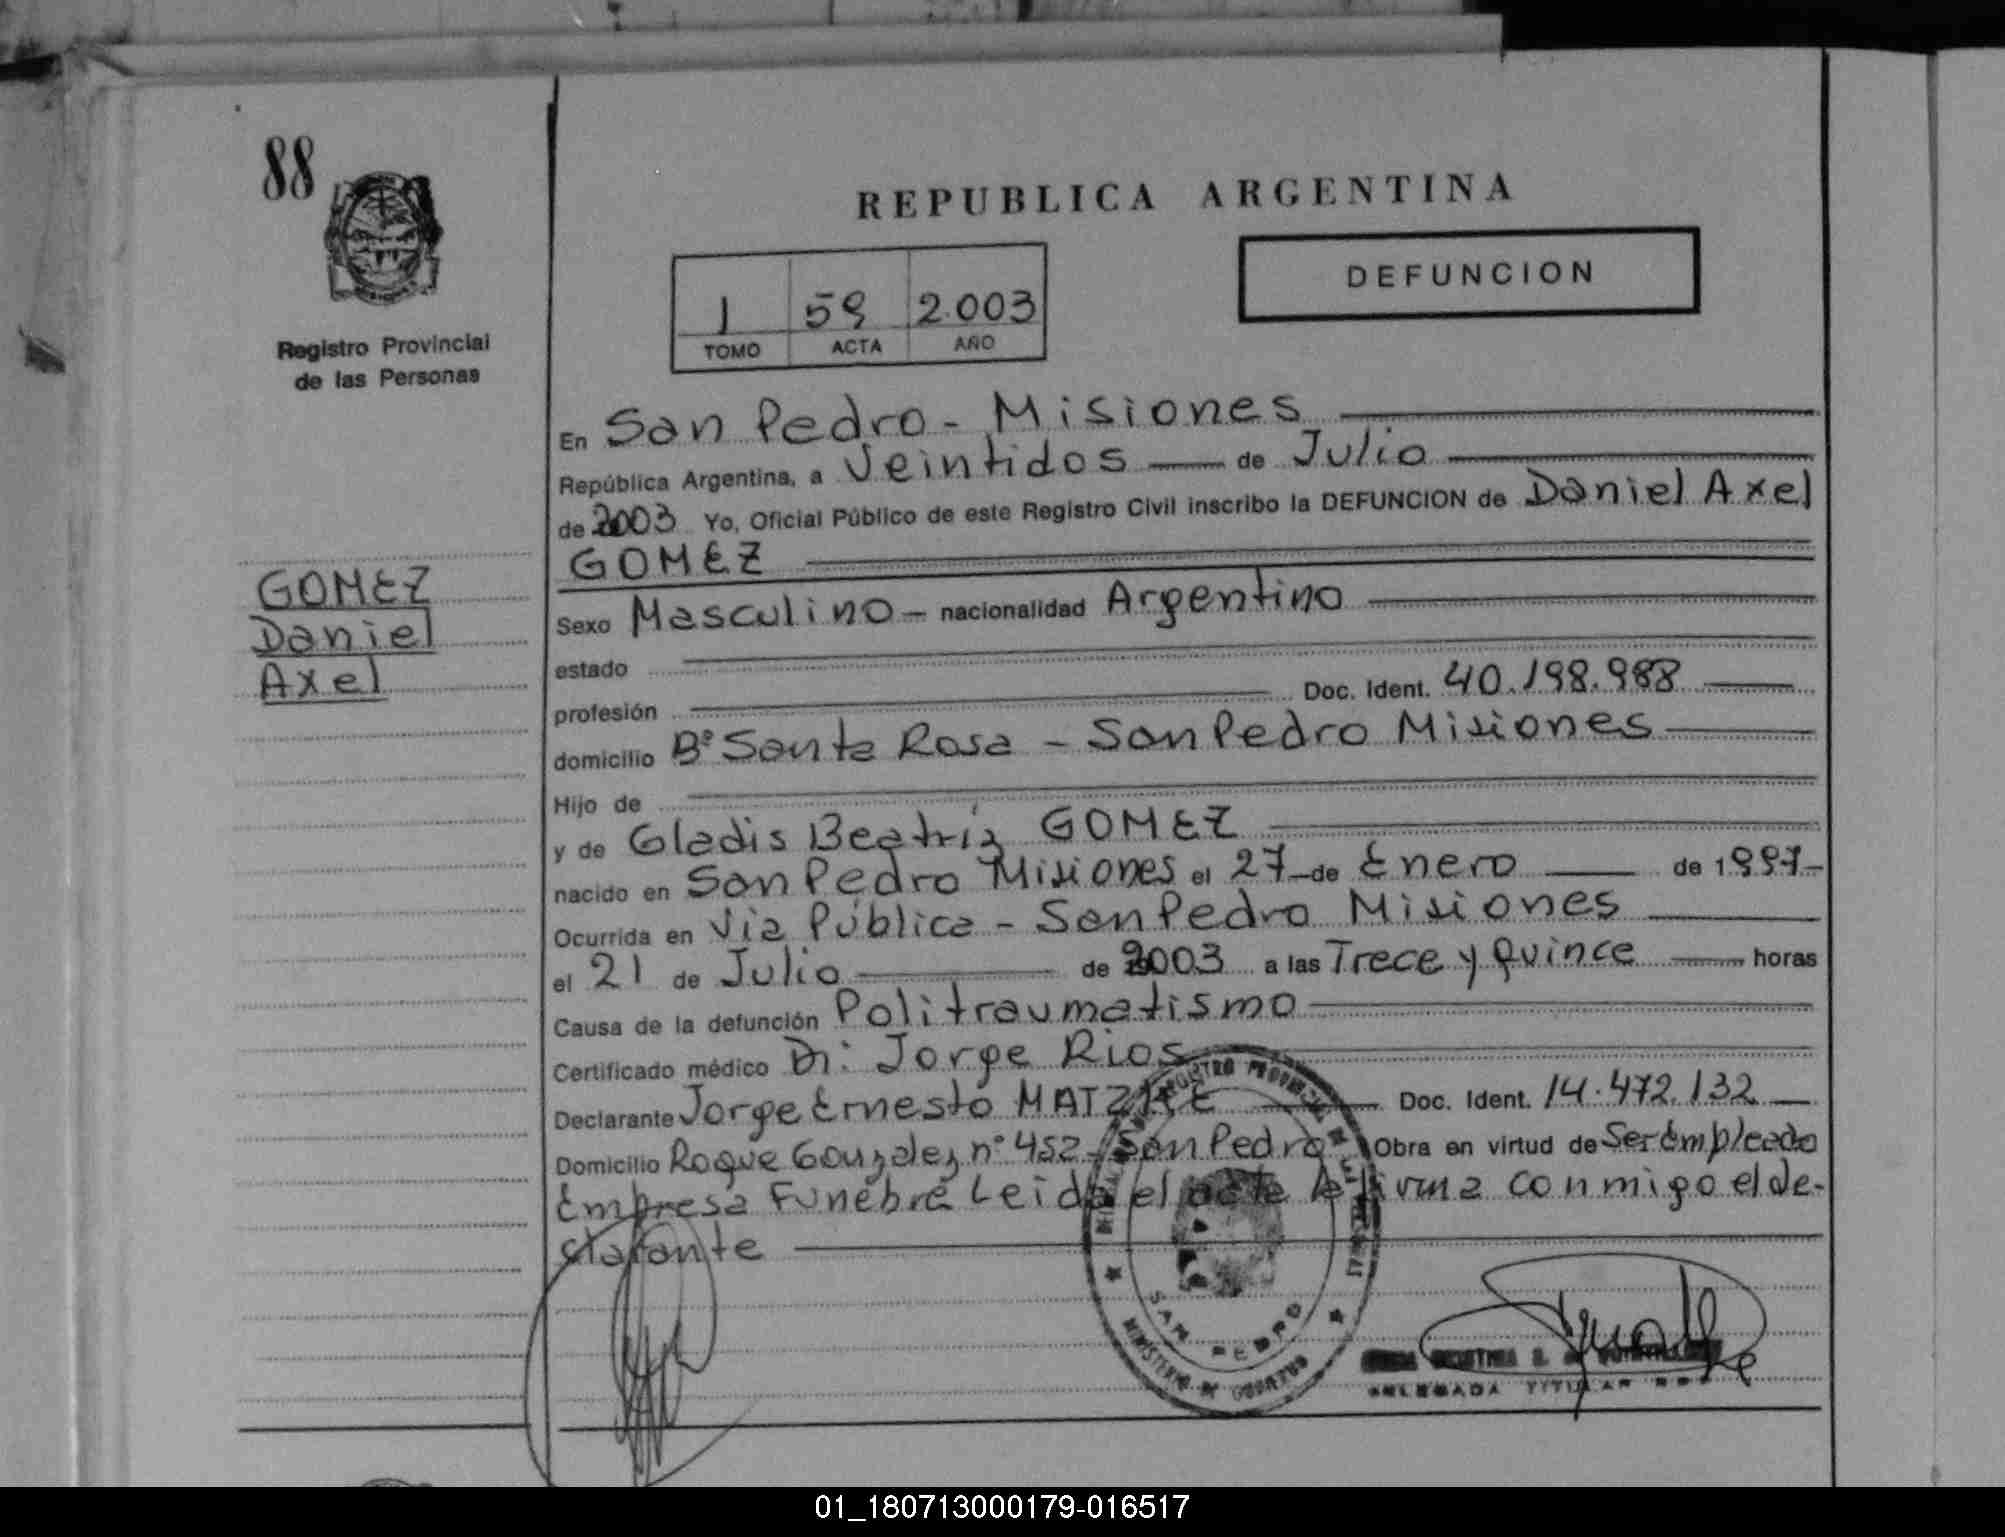 88
REPUBLICA ARGENTINA
DEFUNCION
1 59 2.003
TOMO ACTA AÑO
Registro Provincial
de las Personas
GOMEZ
Daniel
Axel
En San Pedro - Misiones
República Argentina, a Veintidos de Julio
de 2003 Yo, Oficial Público de este Registro Civil inscribo la DEFUNCION de Daniel Axel
GOMEZ
Sexo Masculino - nacionalidad Argentino
estado
profesión Doc. Ident. 40.198.988
domicilio Bº Santa Rosa - San Pedro Misiones
Hijo de
y de Gladis Beatríz GOMEZ
nacido en San Pedro Misiones el 27 de Enero de 1997-
Ocurrida en Vía Pública - San Pedro Misiones
el 21 de Julio de 2003 a las Trece y quince horas
Causa de la defunción Politraumatismo
Certificado médico Dr: Jorge Rios
Declarante Jorge Ernesto Doc. Ident. 14.472.132
Domicilio Roque Gonzalez nº 452 - San Pedro Obra en virtud de Ser Empleado
Empresa Funebre Leida el acta la firma conmigo el de-
clarante
REGISTRO PROVINCIAL DE LAS
SAN PEDRO
MINISTERIO DE GOBIERNO
DELEGADA TITULAR
01_180713000179-016517